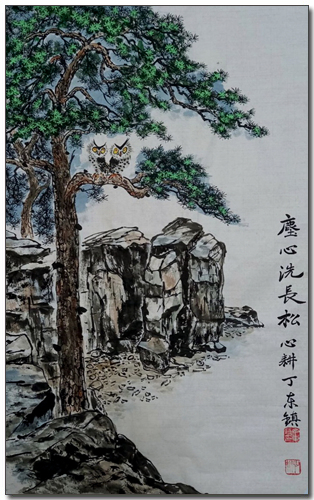 塵心洗長松心耕丁东镇